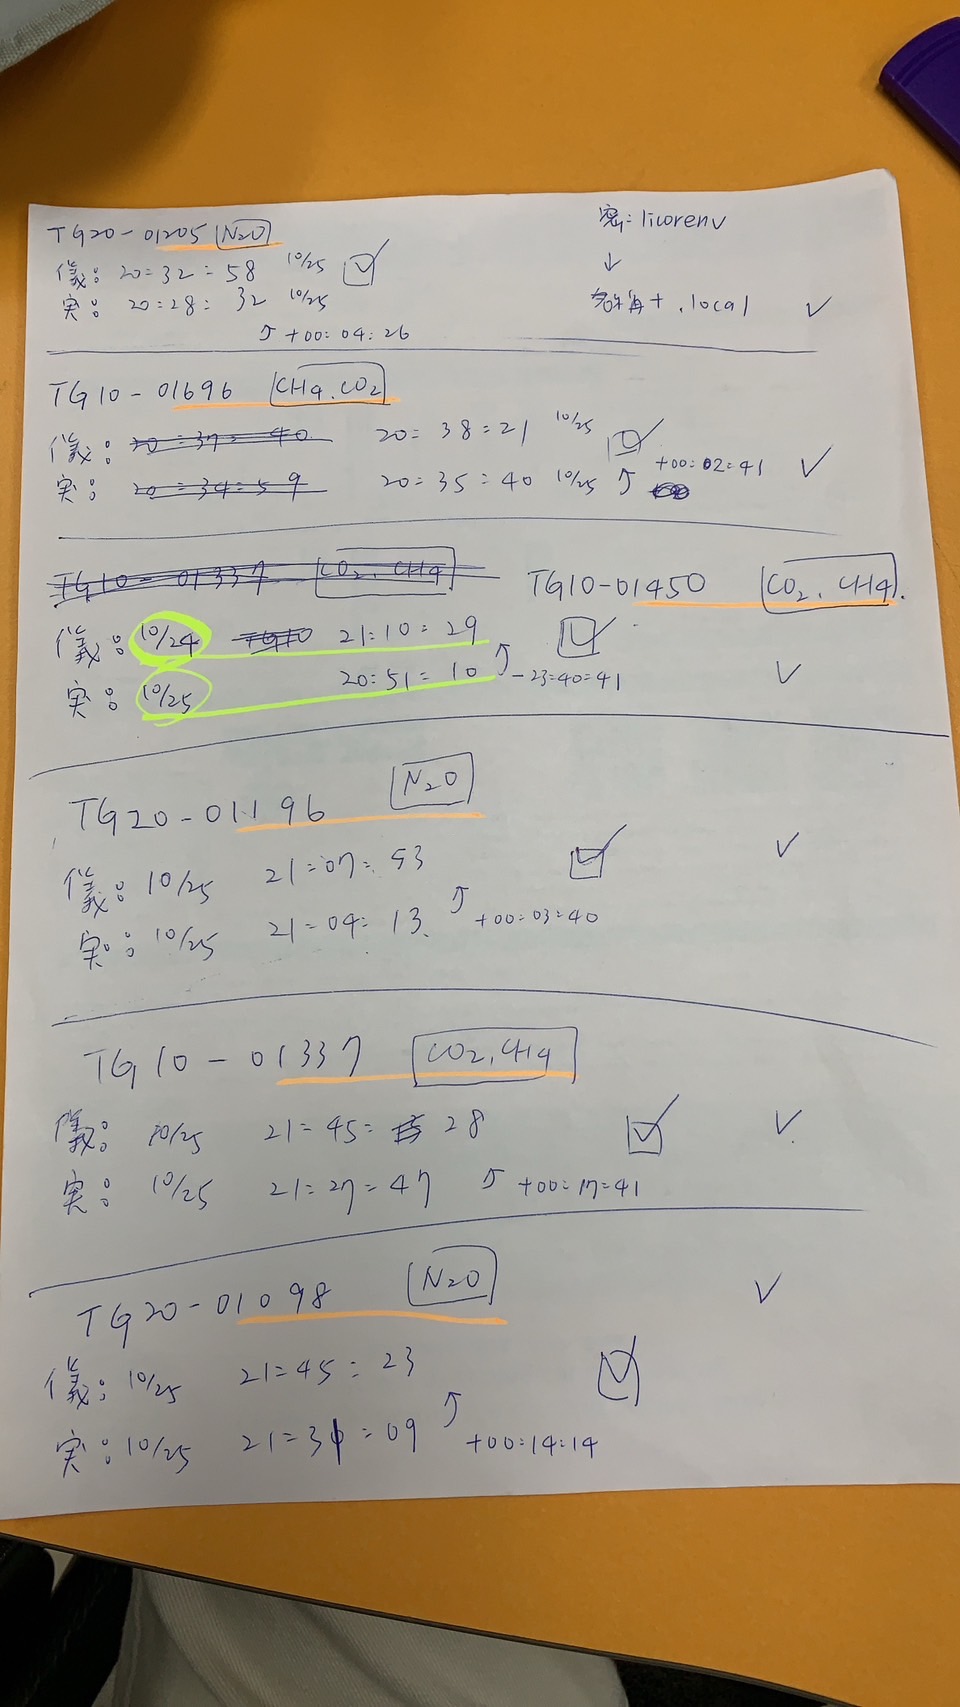 TG20-01205 N2O
儀: 20:32:58 10/25
実: 20:28:32 10/25
↑ +00:04:26
密: licorenv
↓
+ .local
TG10-01696 CH4.CO2
儀: 20:37:40 20:38:21 10/25
実: 20:34:59 20:35:40 10/25 ↑ +00:02:41
TG10-01337 CO2, CH4
TG10-01450 CO2, CH4.
儀: 10/24 TG10 21:10:29
実: 10/25 20:51:10 ↑ -23:40:41
TG20-01196 N2O
儀: 10/25 21:07:53
実: 10/25 21:04:13. ↑ +00:03:40
TG10-01337 CO2, CH4
儀: 10/25 21:45: 28
実: 10/25 21:27:47 ↑ +00:17:41
TG20-01098 N2O
儀: 10/25 21:45:23
実: 10/25 21:31:09 ↑ +00:14:14